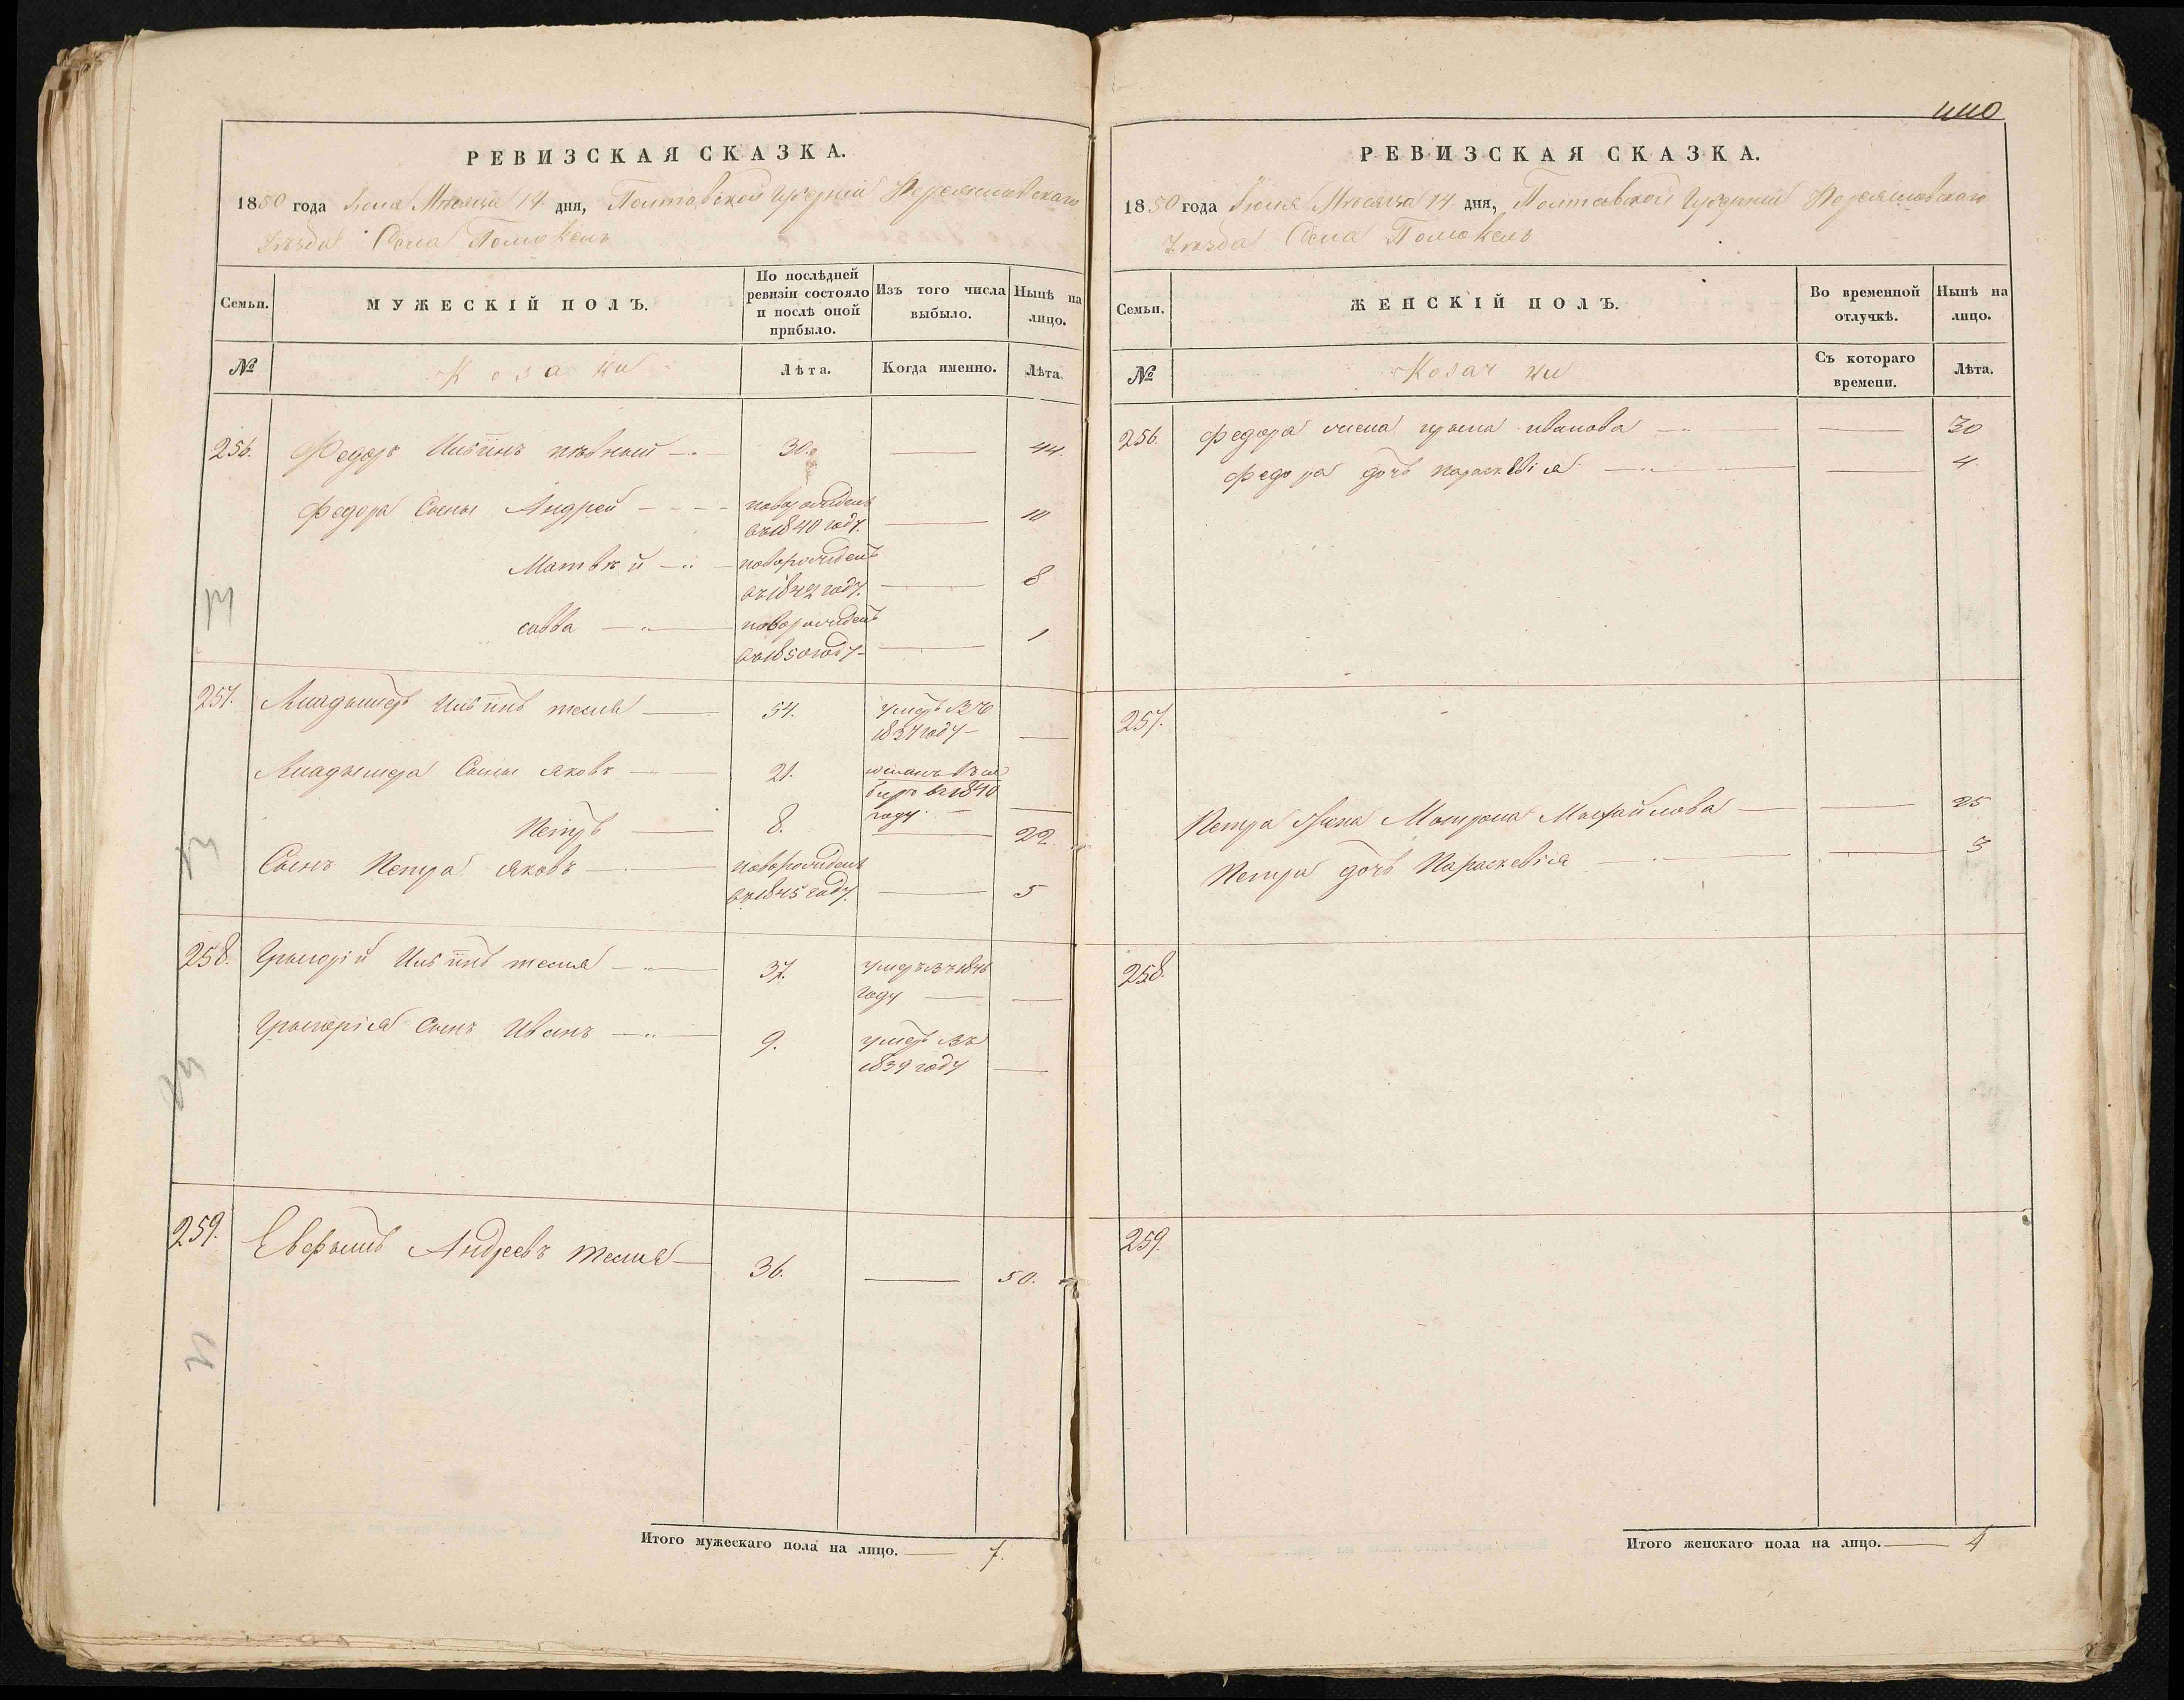 РЕВИЗСКАЯ СКАЗКА.
1850 года Іюля Мѣсяца 14 дня, Полтавской Губерніи Переяславскаго
Уѣзда Села Помокель
Семьи.
МУЖЕСКІЙ ПОЛЪ.
По послѣдней ревизіи состояло и послѣ оной прибыло.
Изъ того числа выбыло.
Нынѣ на лицо.
№
Козаки
Лѣта.
Когда именно.
Лѣта.
256. Федоръ 30. 44.
Федора Сыны Андрей новорожденъ 10
въ 1840 году.
Матвѣй новорожденъ
въ 1842 году. 8
савва новорожденъ
въ 1850 году 1
257. 54. умеръ въ
1837 году
Сыны Яковъ 21.
въ 1840
году.
Петръ 8. 22.
Сынъ Петра Яковъ новорожденъ
въ 1845 году. 5
258. Григорій 37. умеръ въ 1846
году
Григорія Сынъ Иванъ 9. умеръ въ
1839 году
259. Евфимъ Андреевъ 36. 50.
Итого мужескаго пола на лицо. 7.
440
РЕВИЗСКАЯ СКАЗКА.
1850 года Іюля Мѣсяца 14 дня, Полтавской Губерніи Переяславскаго
Уѣзда Села Помокель
Семьи.
ЖЕНСКІЙ ПОЛЪ.
Во временной отлучкѣ.
Нынѣ на лицо.
№
Козачки
Съ котораго времени.
Лѣта.
256. Федора жена иванова 30
Федора дочь параскевія 4
257.
Петра Жена Матрона Михайлова 25
Петра дочь Параскевія 3
258.
259.
Итого женскаго пола на лицо. 4